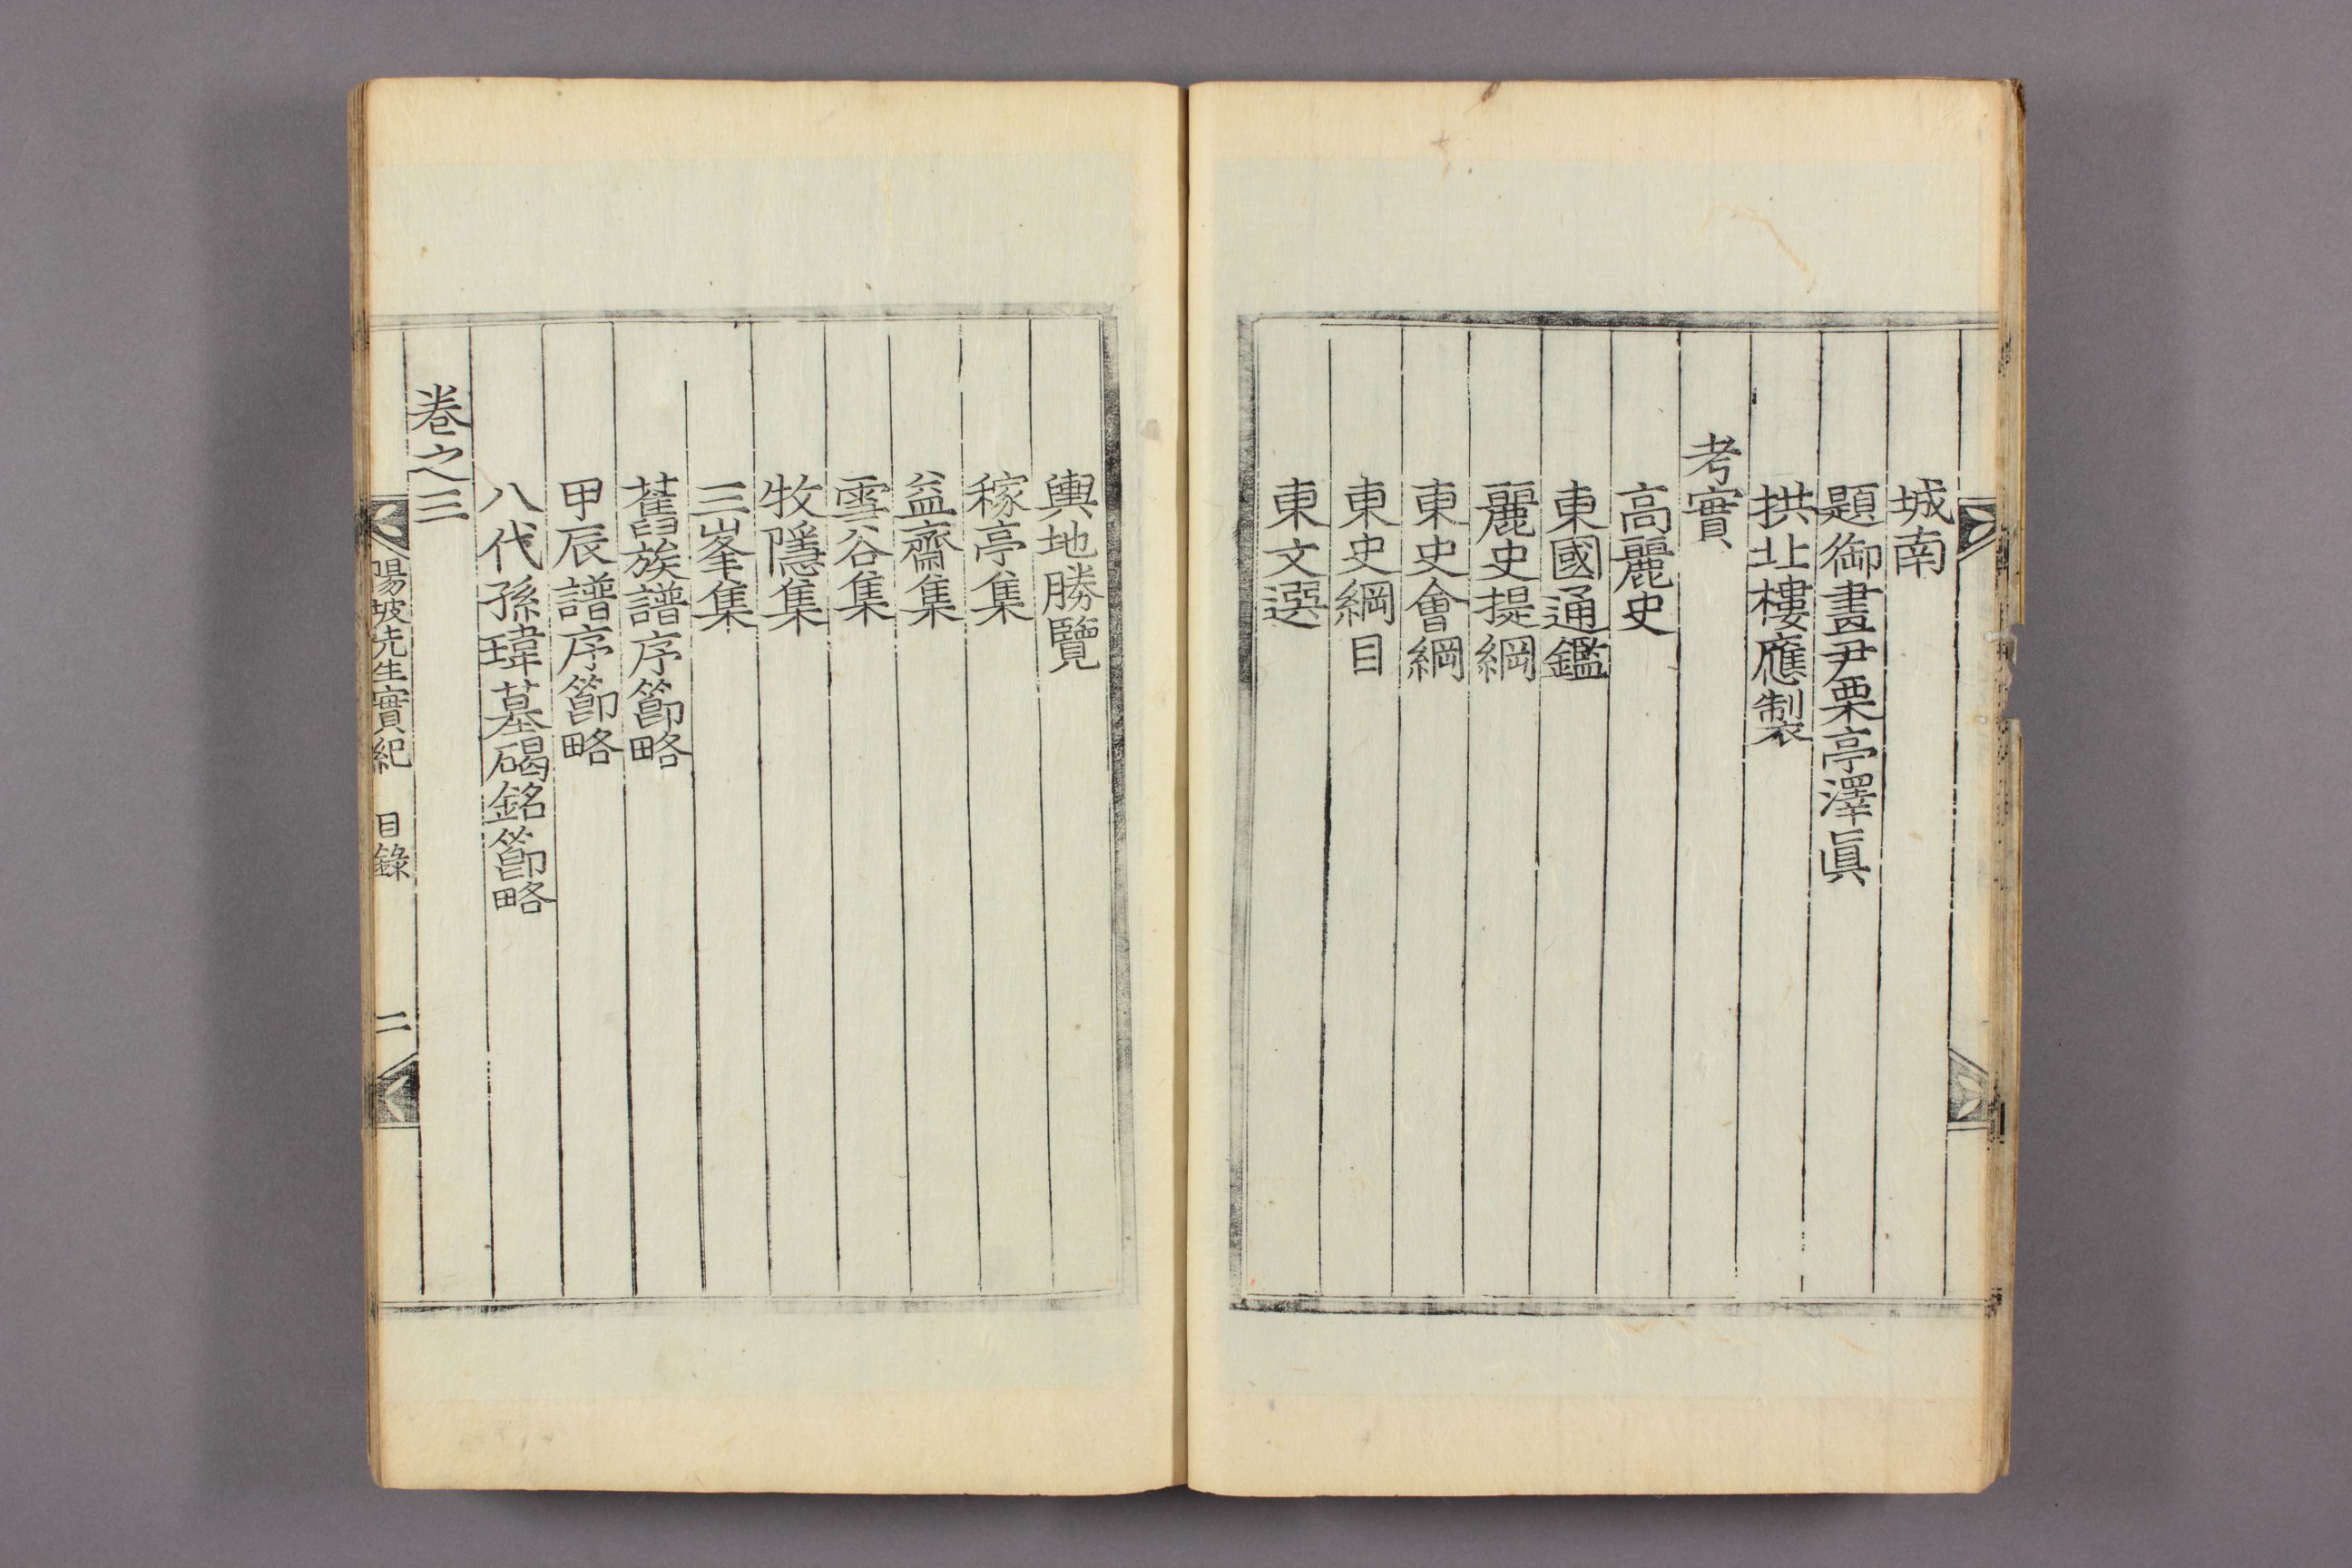 城南
題御畫尹栗亭澤眞
拱北樓應製
考實
高麗史
東國通鑑
麗史提綱
東史會綱
東史綱目
東文選
輿地勝覽
稼亭集
益齋集
雪谷集
牧隱集
三峯集
舊族譜序節略
甲辰譜序節略
八代孫瑋墓碣銘節略
卷之三
陽坡先生實紀 目錄 二